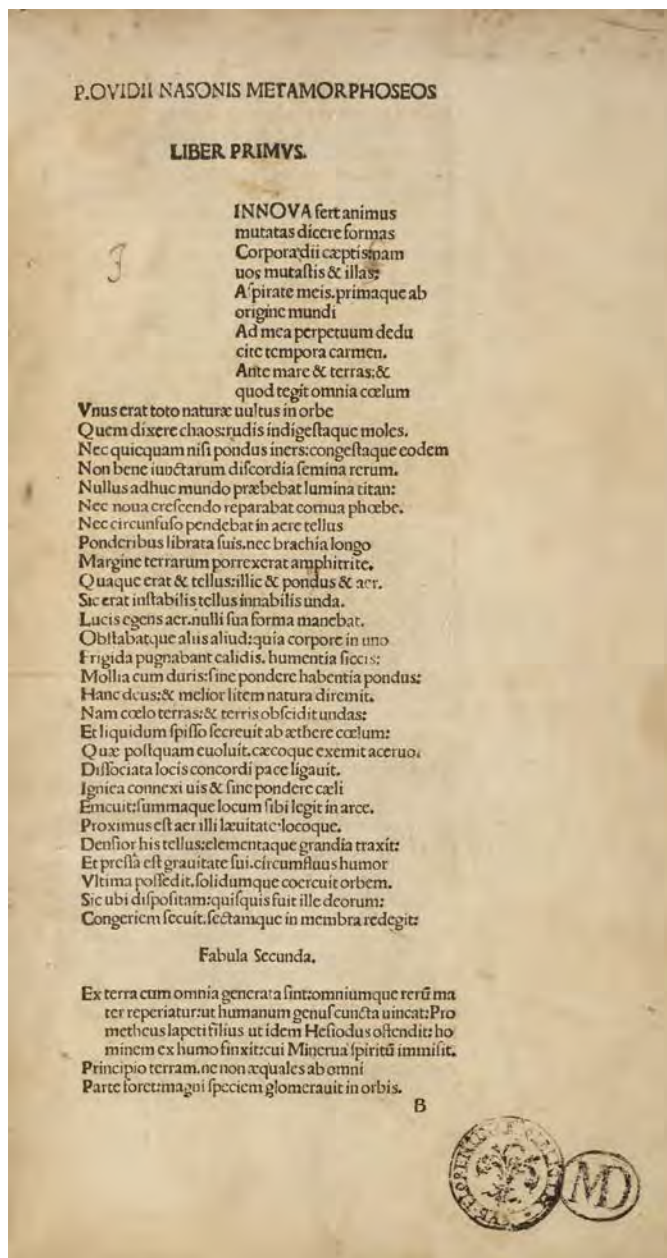 P.OVIDII NASONIS METAMORPHOSEOS
LIBER PRIMVS.
INNOVA fert animus
mutatas dicere formas
Corpora:dii cæptis:nam
uos mutaſtis & illas:
Aſpirate meis.primaque ab
origine mundi
Ad mea perpetuum dedu
cite tempora carmen.
Ante mare & terras:&
quod tegit omnia cœlum
Vnus erat toto naturæ uultus in orbe
Quem dixere chaos:rudis indigeſtaque moles.
Nec quicquam niſi pondus iners:congeſtaque eodem
Non bene iunctarum diſcordia ſemina rerum.
Nullus adhuc mundo præbebat lumina titan:
Nec noua creſcendo reparabat cornua phœbe.
Nec circunfuſo pendebat in aere tellus
Ponderibus librata ſuis.nec brachia longo
Margine terrarum porrexerat amphitrite.
Quaque erat & tellus:illic & pondus & aer.
Sic erat inſtabilis tellus innabilis unda.
Lucis egens aer.nulli ſua forma manebat.
Obſtabatque aliis aliud:quia corpore in uno
Frigida pugnabant calidis. humentia ſiccis:
Mollia cum duris:ſine pondere habentia pondus:
Hanc deus:& melior litem natura diremit.
Nam cœlo terras:& terris obſcidit undas:
Et liquidum ſpiſſo ſecreuit ab æthere cœlum:
Quæ poſtquam euoluit.cæcoque exemit aceruo.
Diſſociata locis concordi pace ligauit.
Ignica connexi uis & ſine pondere cæli
Emcuit:ſummaque locum ſibi legit in arce.
Proximus eſt aer illi læuitate:locoque.
Denſior his tellus:elementaque grandia traxit:
Et preſſa eſt grauitate ſui.circumfluus humor
Vltima poſſedit.ſolidumque coercuit orbem.
Sic ubi diſpoſitam:quiſquis fuit ille deorum:
Congeriem ſecuit.ſectamque in membra redegit:
Fabula Secunda.
Ex terra cum omnia generata ſint:omniumque rerũ ma
ter reperiatur:ut humanum genuſ cuncta uincat:Pro
metheus Iapeti filius ut idem Heſiodus oſtendit: ho
minem ex humo finxit:cui Minerua ſpiritũ immiſit.
Principio terram.ne non æquales ab omni
Parte foret:magni ſpeciem glomerauit in orbis.
B
MD